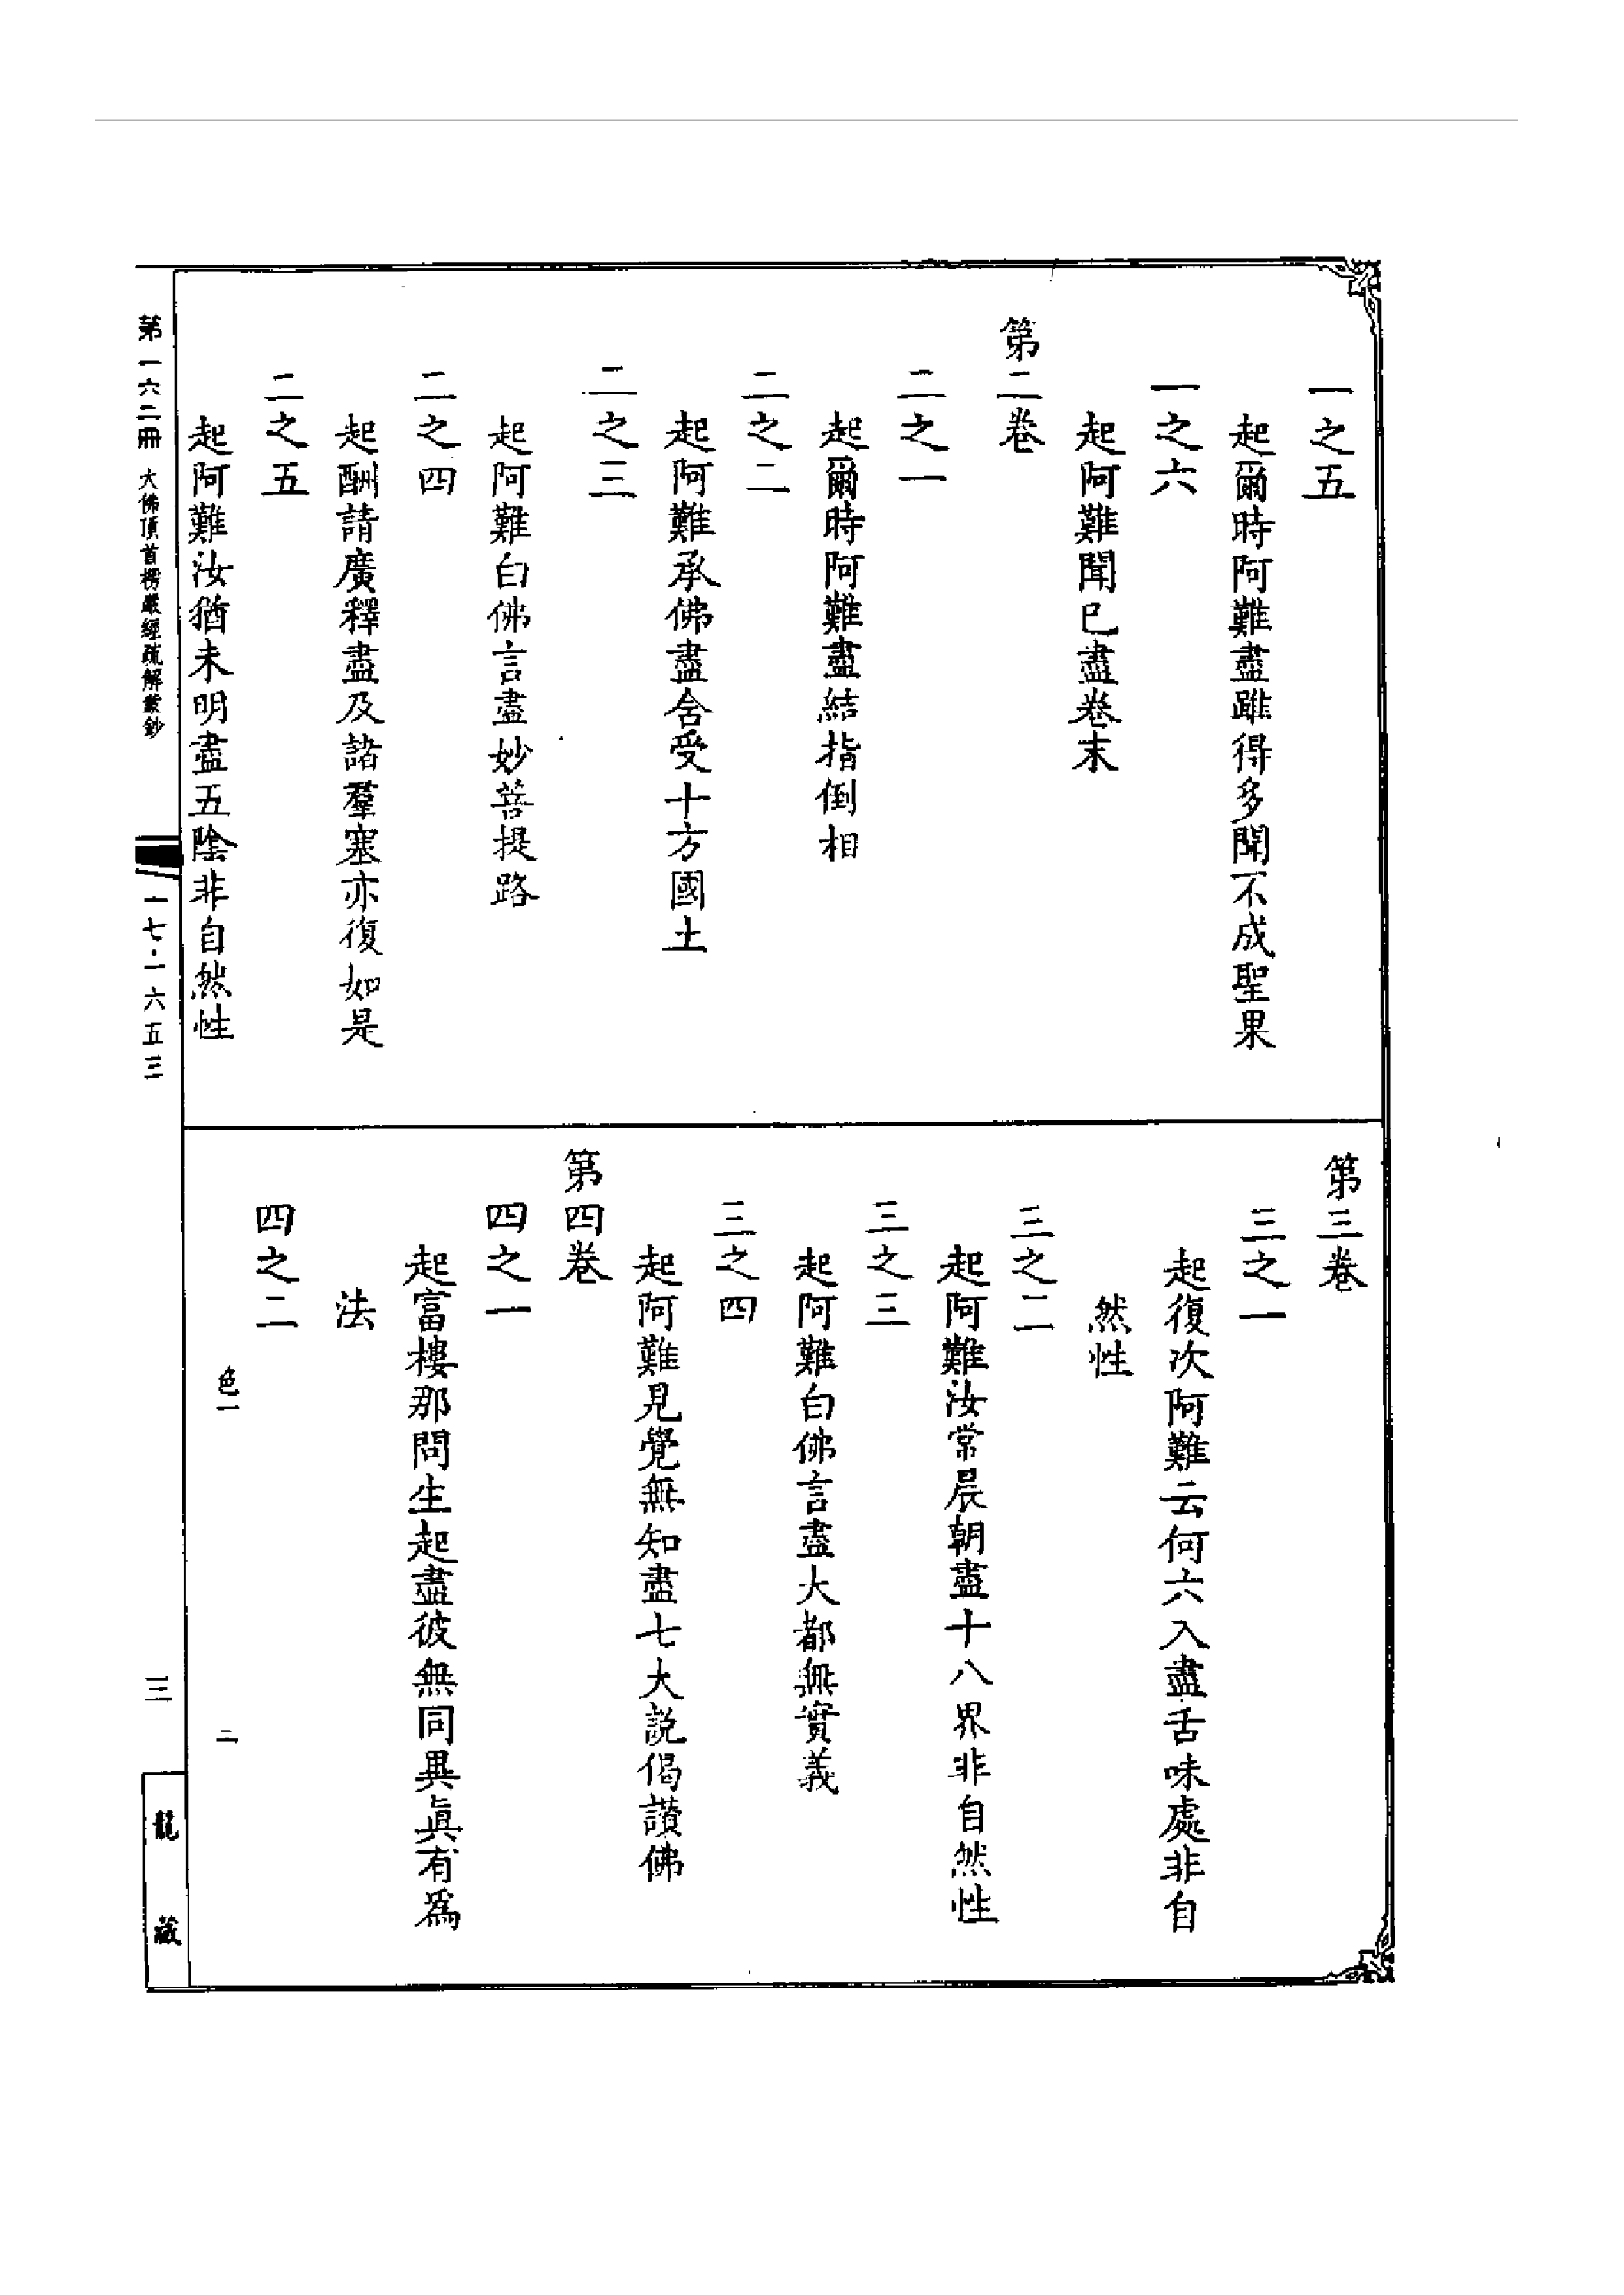 一之五
起爾時阿難盡雖得多聞不成聖果
一之六
起阿難聞已盡卷末
第二卷
二之一
起爾時阿難盡結指倒相
二之二
起阿難承佛盡含受十方國土
二之三
起阿難白佛言盡妙菩提路
二之四
起酬請廣釋盡及諸羣塞亦復如是
二之五
起阿難汝猶未明盡五陰非自然性
第三卷
三之一
起復次阿難云何六入盡舌味處非自
然性
三之二
起阿難汝常晨朝盡十八界非自然性
三之三
起阿難白佛言盡大都無實義
三之四
起阿難見覺無知盡七大說偈讚佛
第四卷
四之一
起富樓那問生起盡彼無同異眞有爲
法
四之二
色一 二
第一六二冊 大佛頂首楞嚴經疏解蒙鈔
一七·一六五三
三
龍藏